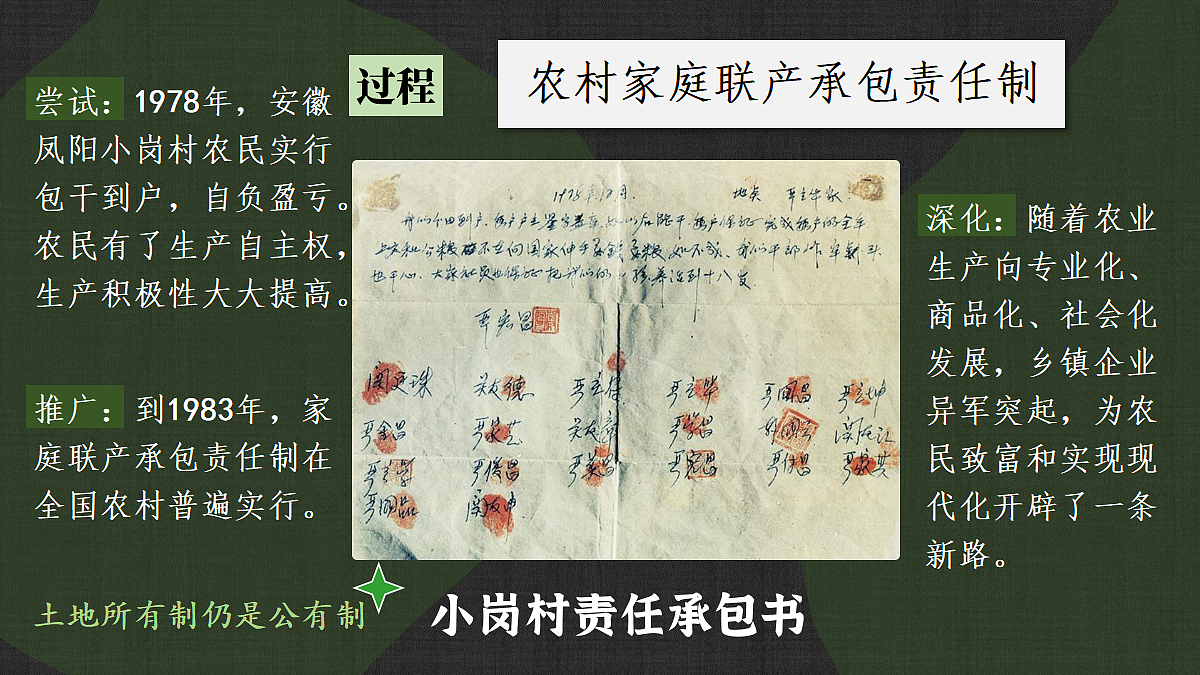 过程
农村家庭联产承包责任制
尝试：1978年，安徽
凤阳小岗村农民实行
包干到户，自负盈亏。
农民有了生产自主权，
生产积极性大大提高。
推广：到1983年，家
庭联产承包责任制在
全国农村普遍实行。
土地所有制仍是公有制
1978年12月. 地点 严立华家
我们分田到户.每户户主签字盖章.如以后能干.每户保证完成每户的全年
上交和公粮.不在向国家伸手要钱要粮.如不成.我们干部作牢刹头
也干心.大家社员也保证把我们的小孩养活到十八岁.
严宏昌
关廷珠 关友德 严立符 严立华 严国昌 严立坤
严金昌 严家芝 关友章 严学昌 韩国云 关友江
严立学 严俊昌 严美昌 严宏昌 严付昌 严家其
严国品 关友申
小岗村责任承包书
深化：随着农业
生产向专业化、
商品化、社会化
发展，乡镇企业
异军突起，为农
民致富和实现现
代化开辟了一条
新路。